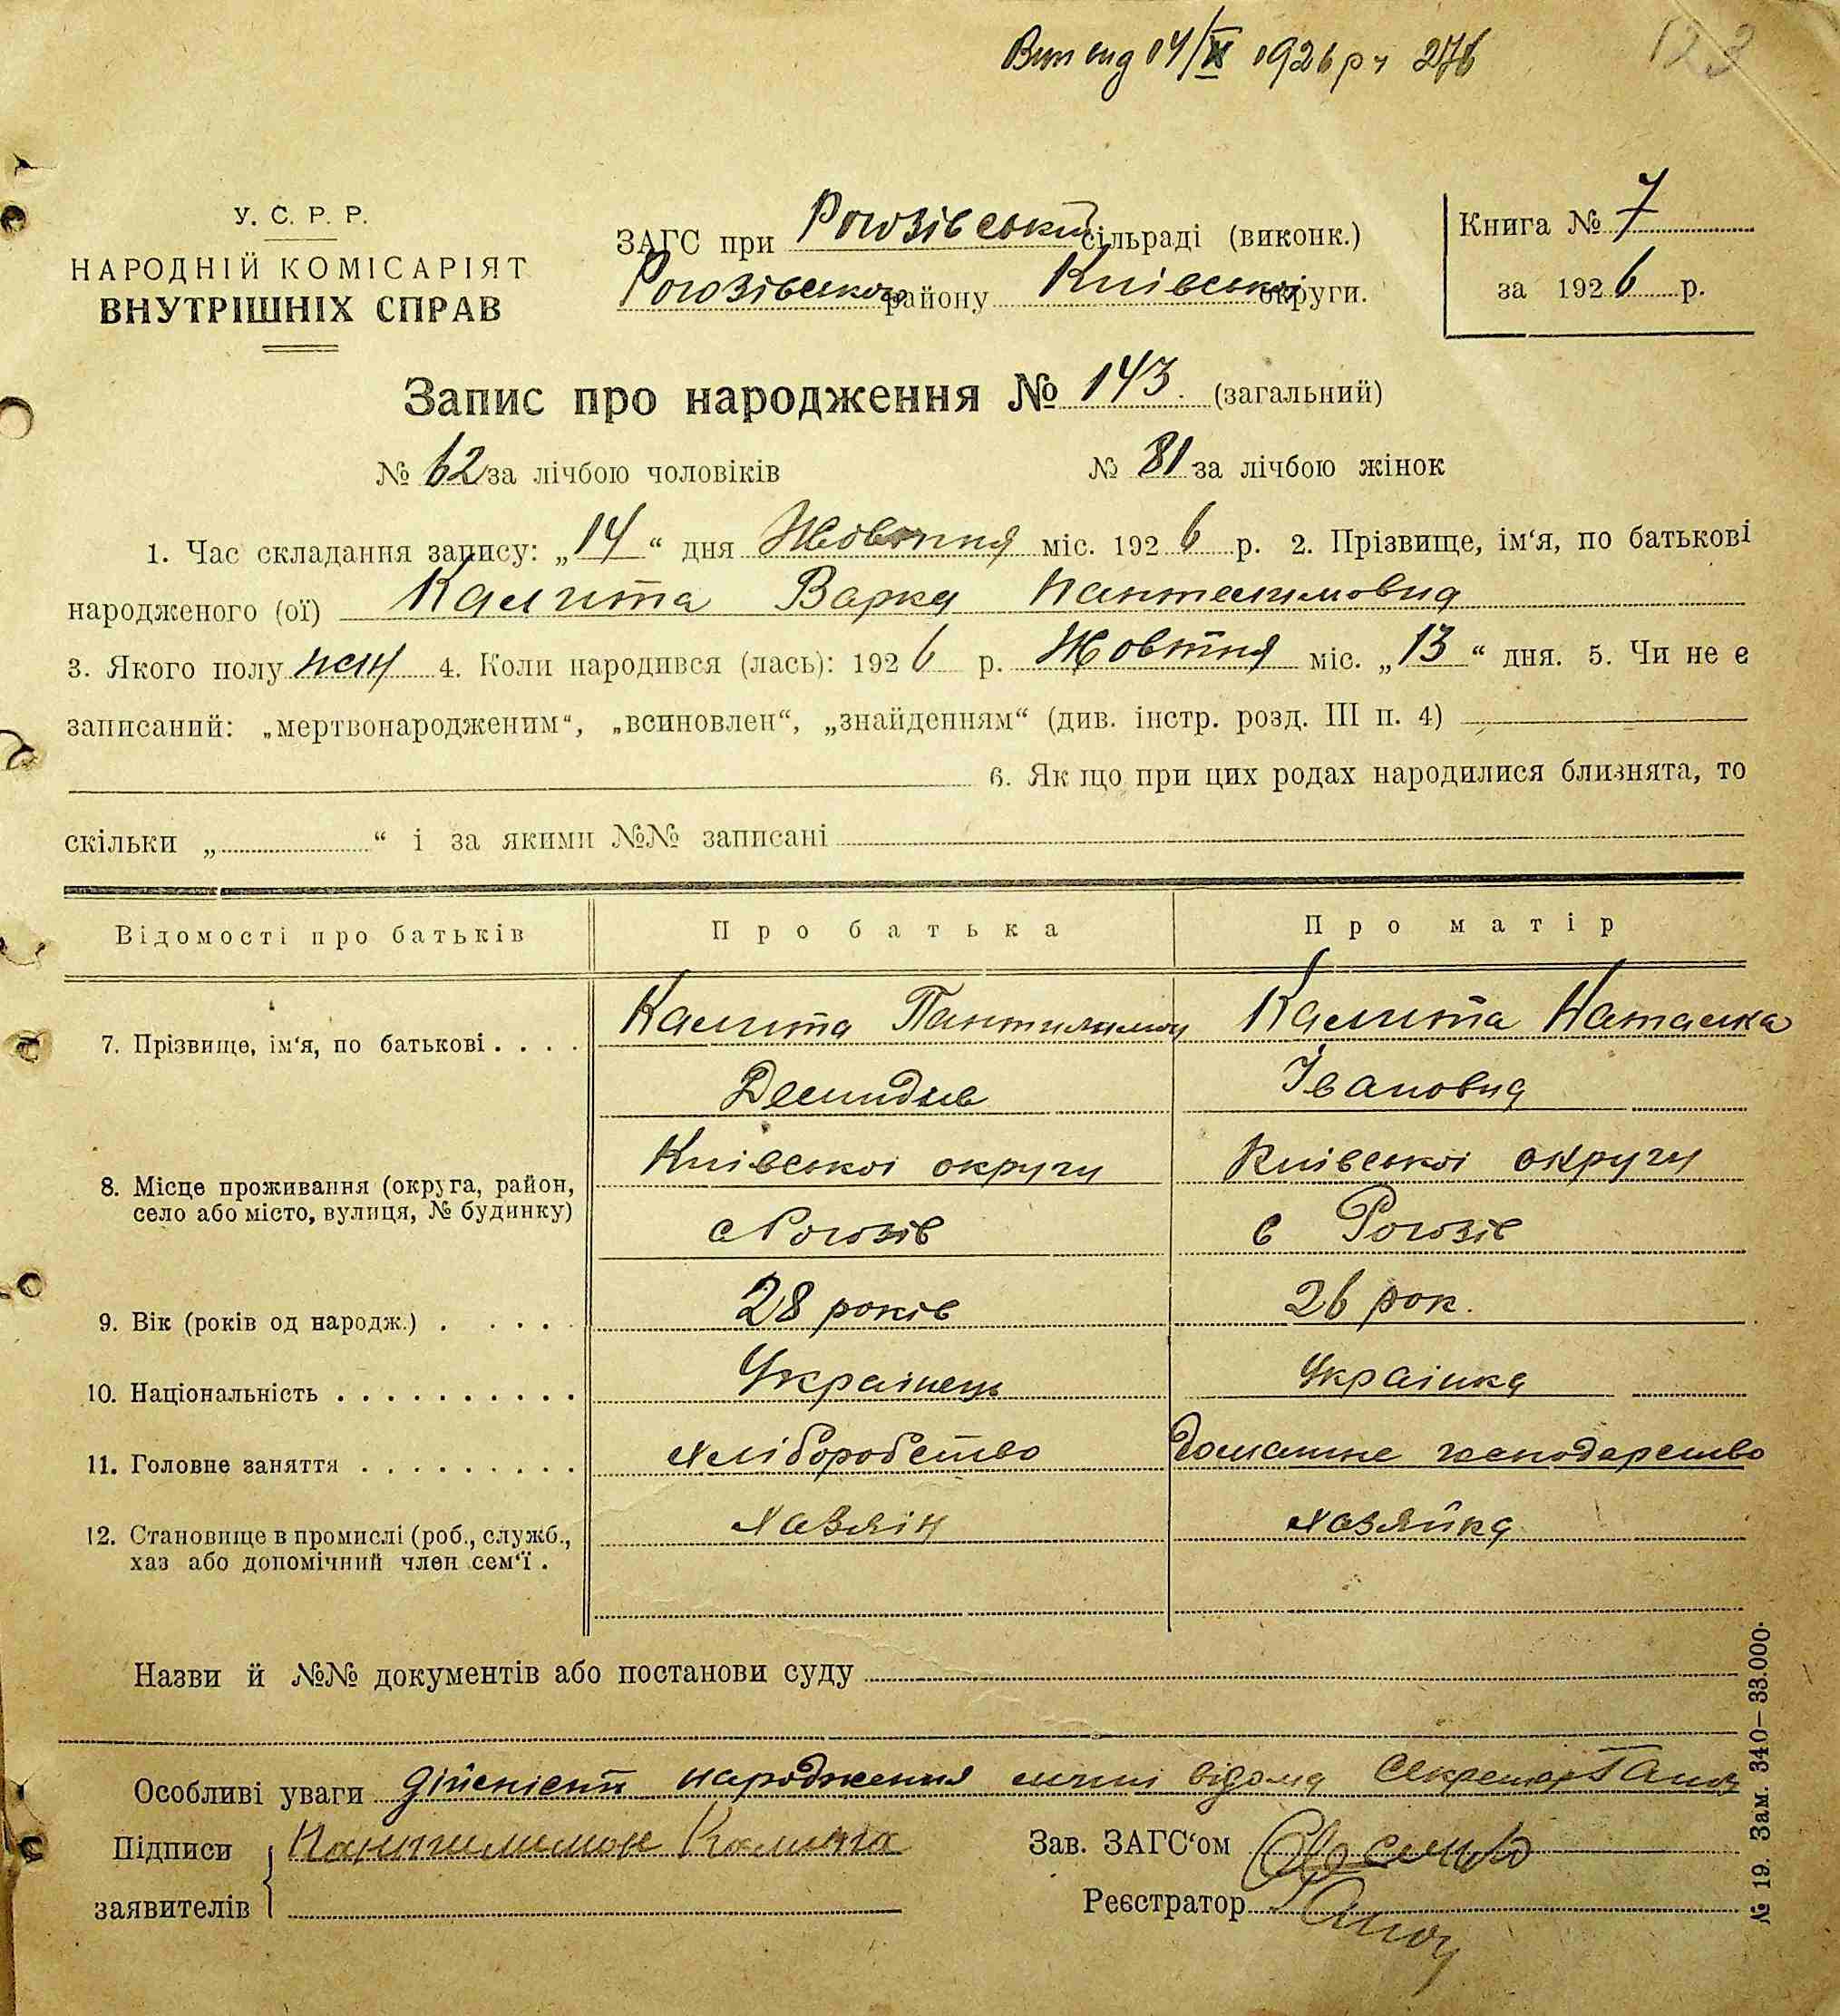 Вип вид 14/X 1926 р ч 276
123
У. С. Р. Р.
НАРОДНІЙ КОМІСАРІЯТ
ВНУТРІШНІХ СПРАВ
ЗАГС при Рогозівській сільраді (виконк.)
Рогозівського району Київської округи.
Книга № 7
за 1926 р.
Запис про народження № 143. (загальний)
№ 62 за лічбою чоловіків № 81 за лічбою жінок
1. Час складання запису: „14“ дня Жовтня міс. 1926 р. 2. Прізвище, ім‘я, по батькові
народженого (ої) Калита Варка Пантелимовна
3. Якого полу жен 4. Коли народився (лась): 1926 р. Жовтня міс. „13“ дня. 5. Чи не є
записаний: „мертвонародженим“, „всиновлен“, „знайденням“ (див. інстр. розд. III п. 4)
6. Як що при цих родах народилися близнята, то
скільки „ “ і за якими №№ записані
Відомості про батьків Про батька Про матір
7. Прізвище, ім‘я, по батькові . . . . Калита Пантилимон Калита Наталка
Демидів Івановна
8. Місце проживання (округа, район,
село або місто, вулиця, № будинку)
Київської округи Київської округи
с Рогозів с Рогозів
9. Вік (років од народж.) . . . . . 28 років 26 рок.
10. Національність . . . . . . . . . . Украінець Украінка
11. Головне заняття . . . . . . . . . Хліборобство домашнє господарство
12. Становище в промислі (роб., служб.,
хаз або допомічний член сем‘ї .
Хазяїн Хазяйка
Назви й №№ документів або постанови суду
Особливі уваги дійсність народження мині відома Секретар
Підписи
заявителів
Пантилимон Калита
Зав. ЗАГС‘ом
Реєстратор
№ 19. Зам. 340—33.000.